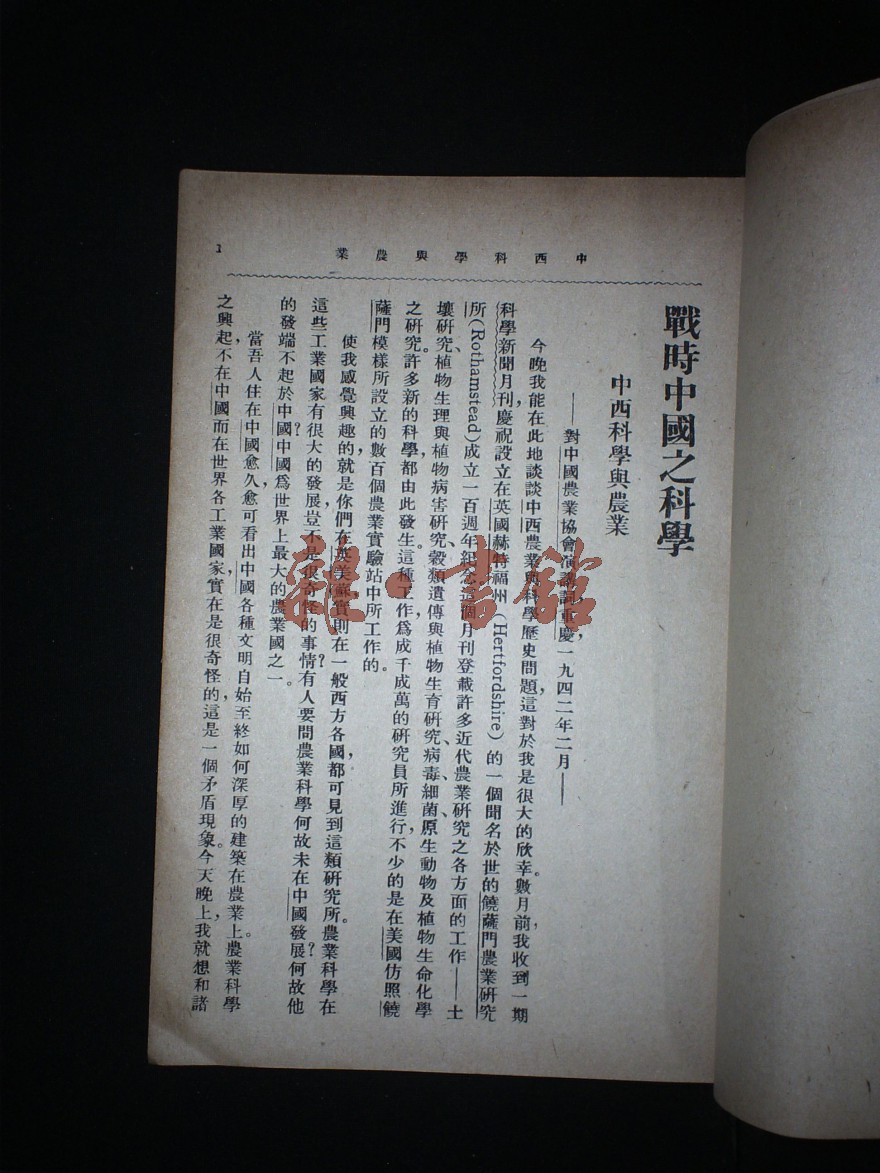 中西科學與農業
1
戰時中國之科學
中西科學與農業
——對中國農業協會演講詞,重慶,一九四二年二月——
今晚我能在此地談談中西農業與科學歷史問題,這對於我是很大的欣幸。數月前,我收到一期
科學新聞月刊,慶祝設立在英國赫特福州 (Hertfordshire) 的一個聞名於世的饒薩門農業研究
所(Rothamstead)成立一百週年紀念,這個月刊登載許多近代農業研究之各方面的工作——土
壤研究、植物生理與植物病害研究、穀類遺傳與植物生育研究、病毒、細菌、原生動物及植物生命化學
之研究。許多新的科學,都由此發生。這種工作爲成千成萬的研究員所進行,不少的是在美國仿照饒
薩門模樣所設立的數百個農業實驗站中所工作的。
使我感覺興趣的,就是你們在英美蘇,實則在一般西方各國,都可見到這類研究所。農業科學在
這些工業國家有很大的發展,豈不是很奇怪的事情?有人要問農業科學何故未在中國發展?何故他
的發端不起於中國?中國爲世界上最大的農業國之一。
當吾人住在中國愈久,愈可看出中國各種文明自始至終如何深厚的建築在農業上。農業科學
之興起,不在中國而在世界各工業國家,實在是很奇怪的,這是一個矛盾現象。今天晚上,我就想和諸
雜·書館